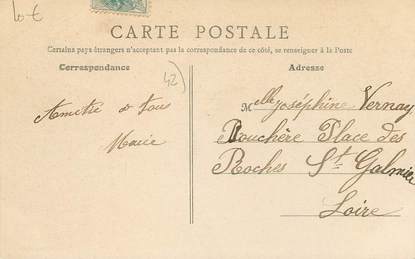 10 €
CARTE POSTALE
Certains pays étrangers n'acceptent pas la correspondance de ce côté, se renseigner à la Poste
Correspondance
Adresse
42)
Amitié à tous
Marie
Melle Joséphine Vernay
Bouchère Place des
Roches St Galmier
Loire